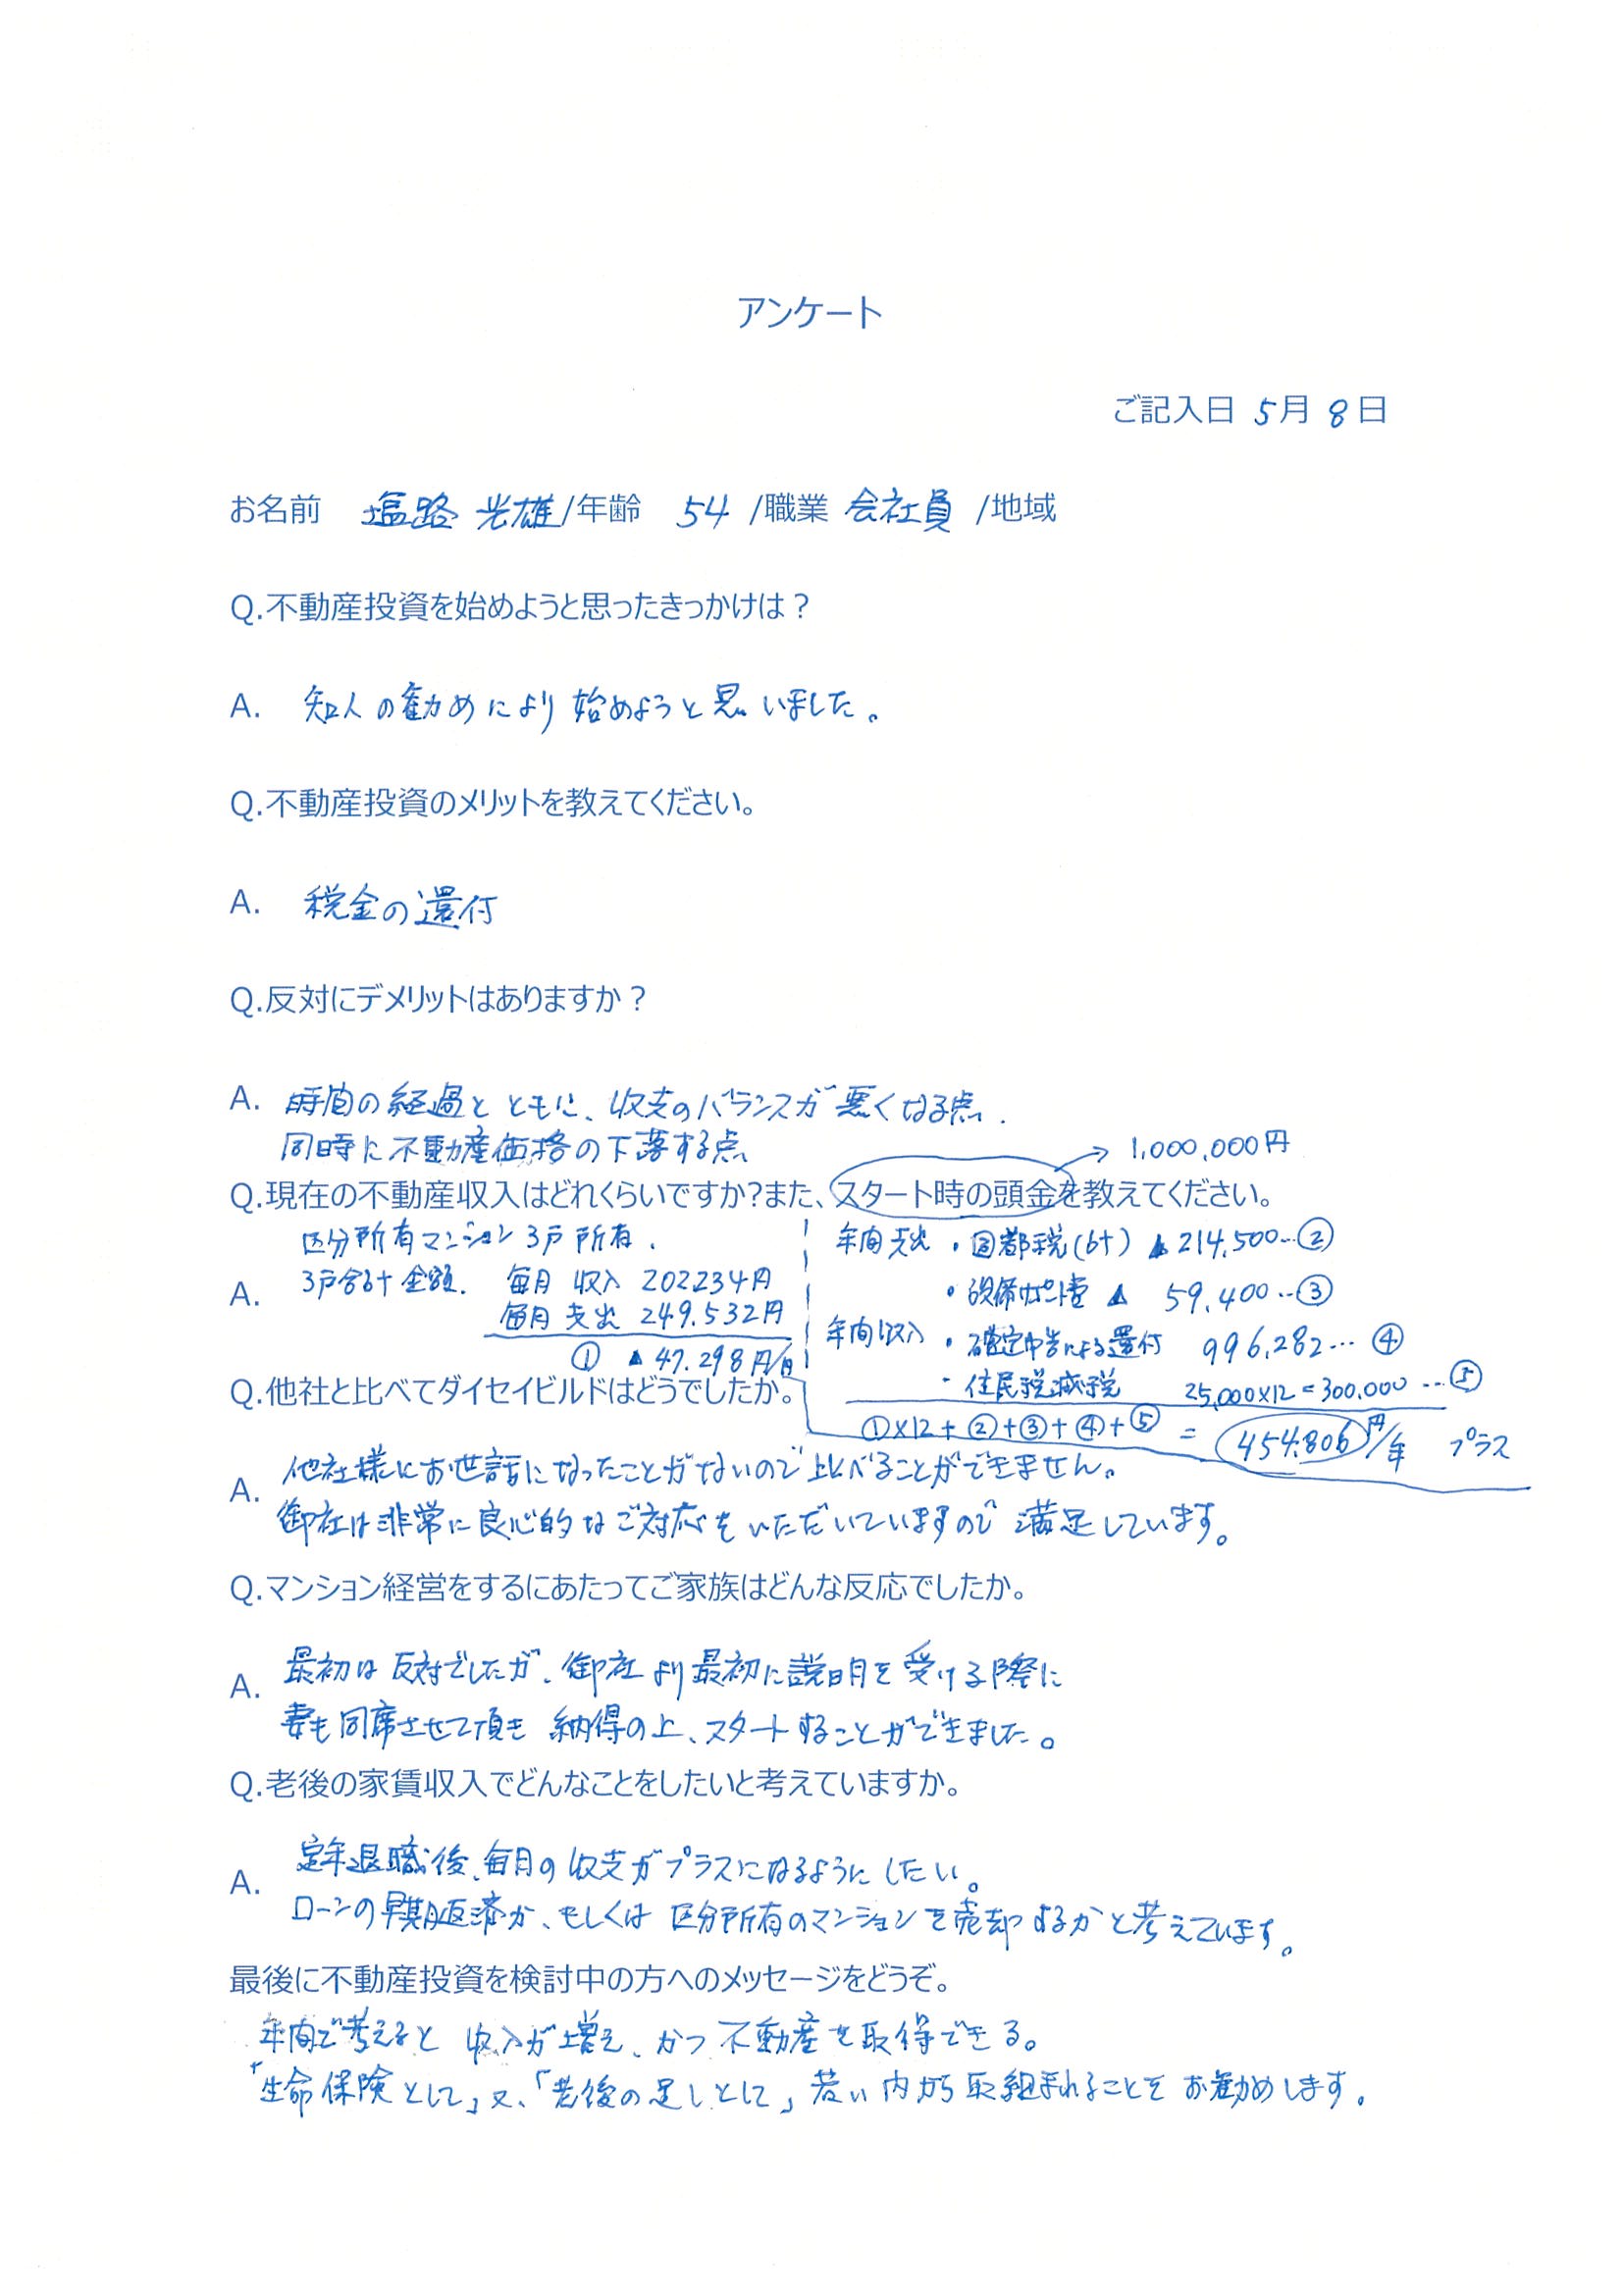 アンケート
ご記入日 5月 8日
お名前 塩路 光雄/年齢 54 /職業 会社員 /地域
Q.不動産投資を始めようと思ったきっかけは？
A. 知人の勧めにより始めようと思いました。
Q.不動産投資のメリットを教えてください。
A. 税金の還付
Q.反対にデメリットはありますか？
A. 時間の経過とともに、収支のバランスが悪くなる点.
同時に不動産価格の下落する点
→ 1,000,000円
Q.現在の不動産収入はどれくらいですか?また、スタート時の頭金を教えてください。
区分所有マンション 3戸所有.
A. 3戸合計金額. 毎月 収入 202234円
毎月 支出 249.532円
① ▲47.298円/月
年間支出 ・固都税(6件) ▲214,500…②
・設備サポート費 ▲ 59,400…③
年間収入 ・確定申告による還付 996,282…④
・住民税減税 25,000×12=300,000…⑤
①×12+②+③+④+⑤ = 454.806円/年 プラス
Q.他社と比べてダイセイビルドはどうでしたか。
A. 他社様にお世話になったことがないので比べることができません。
御社は非常に良心的なご対応をいただいていますので満足しています。
Q.マンション経営をするにあたってご家族はどんな反応でしたか。
A. 最初は反対でしたが、御社より最初に説明を受ける際に
妻も同席させて頂き 納得の上、スタートすることができました。
Q.老後の家賃収入でどんなことをしたいと考えていますか。
A. 定年退職後、毎月の収支がプラスになるようにしたい。
ローンの早期返済か、もしくは区分所有のマンションを売却するかと考えています。
最後に不動産投資を検討中の方へのメッセージをどうぞ。
年間で考えると 収入が増え、かつ不動産を取得できる。
「生命保険として」又、「老後の足しとして」若い内から取組まれることをお勧めします。